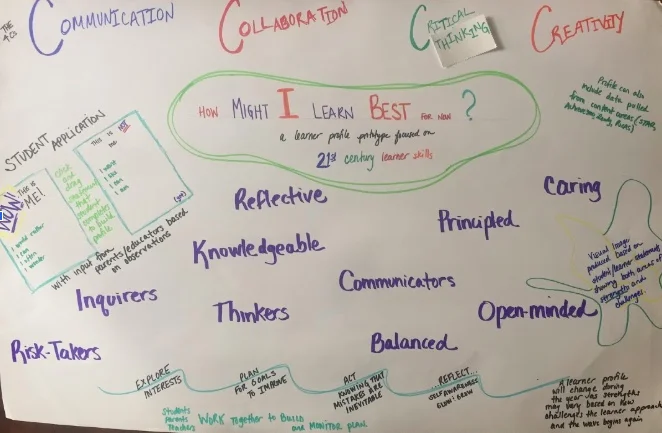 THE
4Cs
COMMUNICATION
COLLABORATION
CRITICAL
THINKING
CREATIVITY
HOW MIGHT I LEARN BEST FOR NOW ?
a learner profile prototype focused on
21st century learner skills
Profile can also
include data pulled
from content areas (STAR,
STUDENT APPLICATION
THIS IS
ME!
I would rather
I can
I wonder
click
and drag
statements
that
student
completes
to build
profile
THIS IS NOT
ME
I want
I can
I can
with input from
parents/educators based
on observations
Reflective
Caring
Principled
Knowledgeable
Communicators
Inquirers
Thinkers
Open-minded
Risk-Takers
Balanced
Visual Image
produced based on
student/learner statements
showing both areas of
strengths and
challenges.
EXPLORE
INTERESTS
PLAN
FOR GOALS
TO IMPROVE
ACT
KNOWING THAT
MISTAKES ARE
INEVITABLE
...REFLECT...
SELF AWARENESS
GLOW : GROW
Students
Parents
Teachers
WORK TOGETHER to BUILD
and MONITOR PLAN
A learner profile
will change during
the year as strengths
may vary based on new
challenges the learner approaches
and the wave begins again